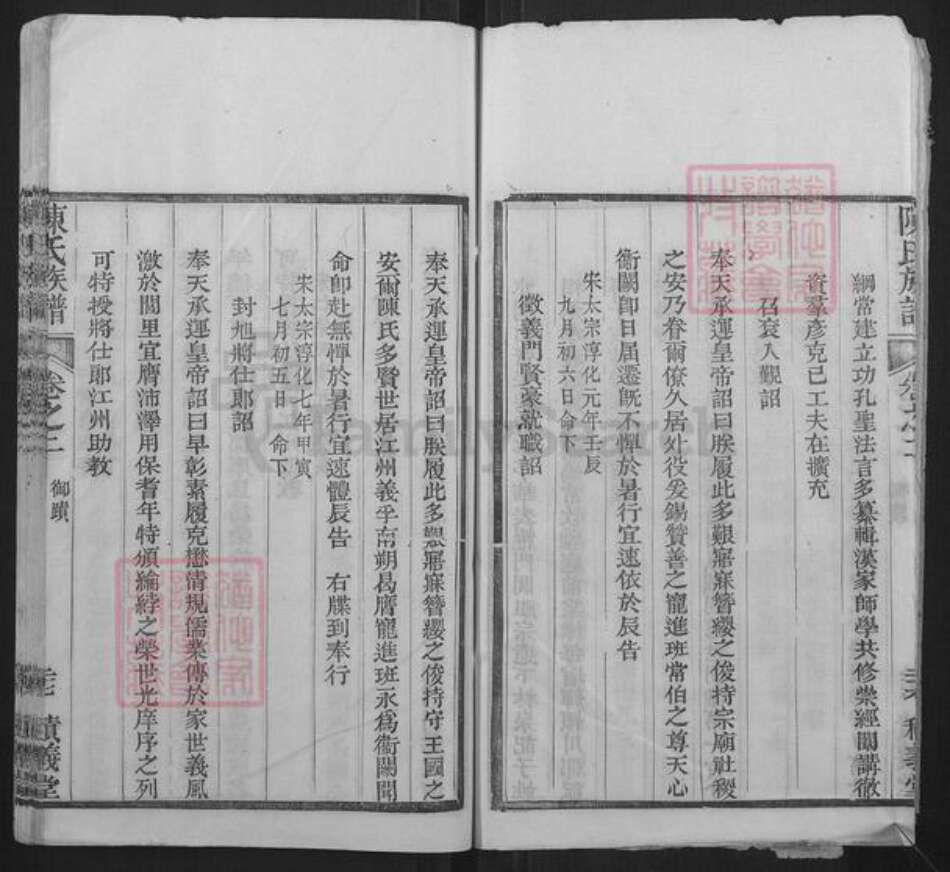 陳氏族譜
卷之二
積義堂
綱常建立功孔聖法言多纂輯漢家師學共修業經闡講徹
資羣彥克己工夫在擴充
召袞入覲詔
奉天承運皇帝詔曰朕履此多艱寤寐簪纓之俊持宗廟社稷
之安乃眷爾僚久居外役爰錫贊善之寵進班常伯之尊天心
衙闕卽日屆遷旣不憚於暑行宜速依於辰告
宋太宗淳化元年壬辰
九月初六日命下
徵義門賢豪就職詔
奉天承運皇帝詔曰朕履此多艱寤寐簪纓之俊持守王國之
安爾陳氏多賢世居江州義孚南朔曷膺寵進班永爲衙闕聞
命卽赴無憚於暑行宜速體辰告 右牒到奉行
宋太宗淳化七年甲寅
七月初五日 命下
封旭將仕郎詔
奉天承運皇帝詔曰早彰素履克懋清規儒業傳於家世義風
激於閭里宜膺沛澤用保耆年特頒綸綍之榮世光庠序之列
可特授將仕郎江州助教
陳氏族譜
卷之二
御蹟
積義堂
FamilySearch